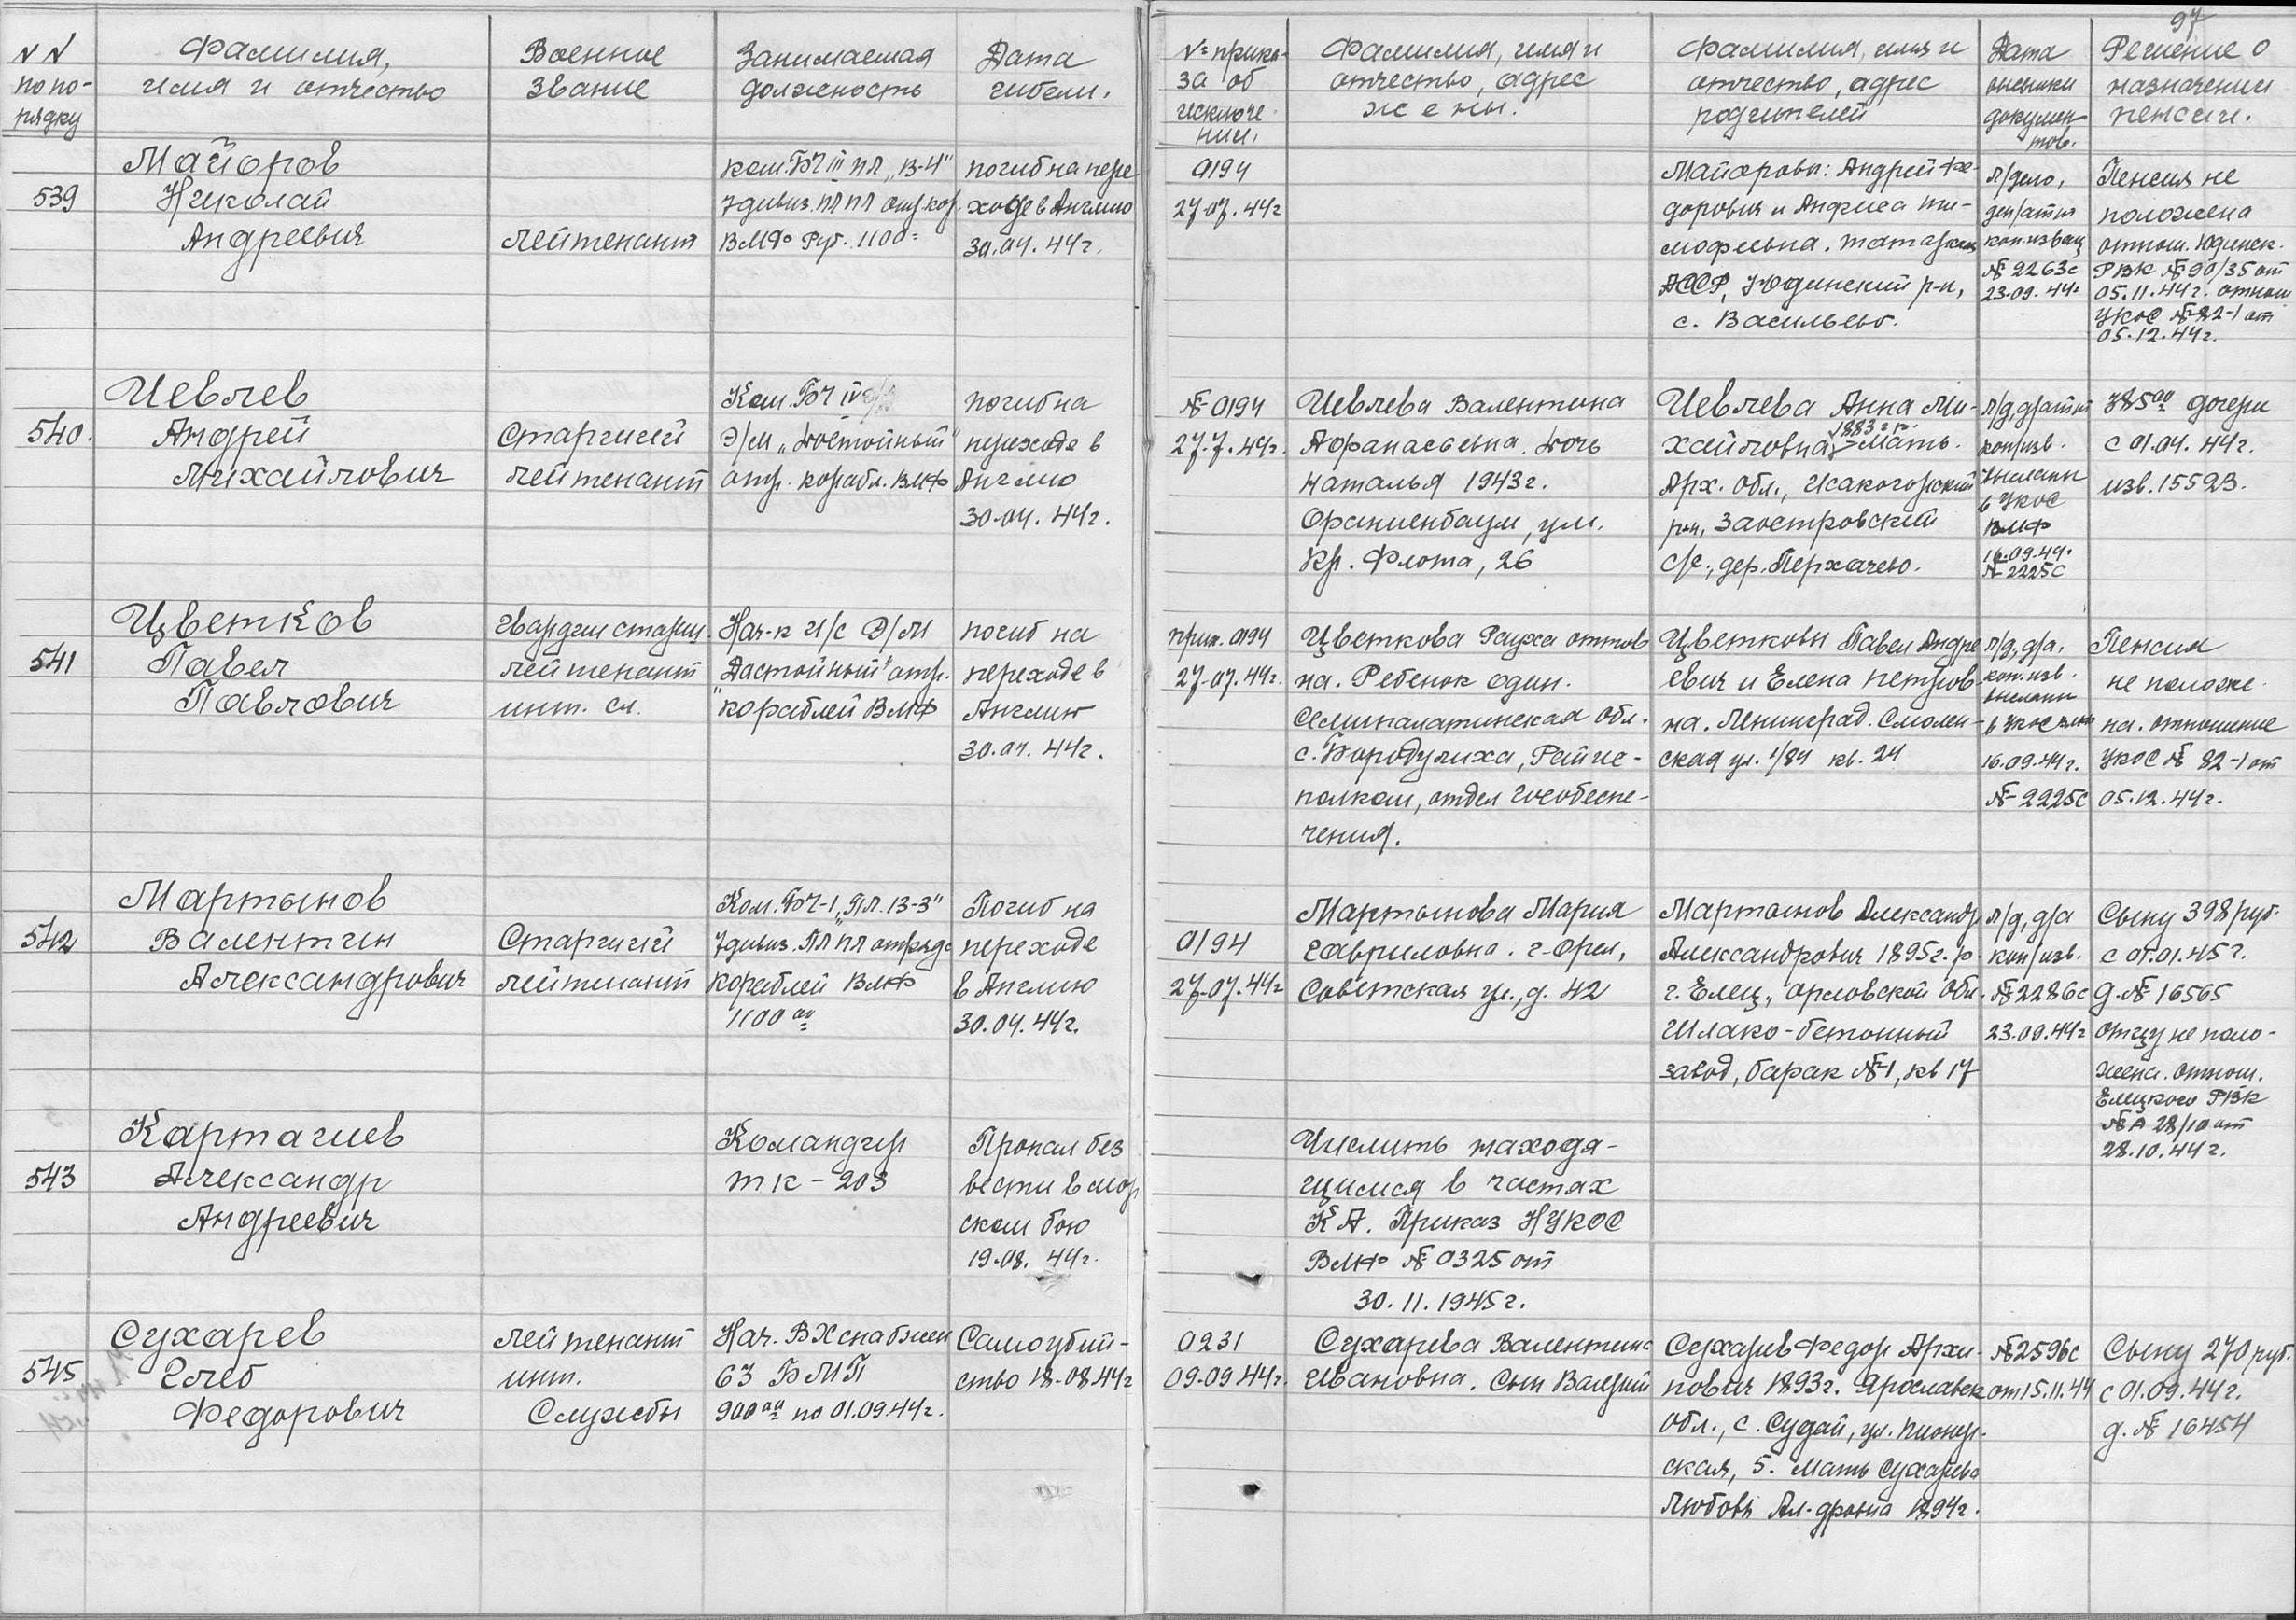 97
NN по по-рядку
Фамилия, имя и отчество
Военное звание
Занимаемая должность
Дата гибели.
№ прика-за об исключе-нии.
Фамилия, имя и отчество, адрес жены.
Фамилия, имя и отчество, адрес родителей
Дата высылки докумен-тов.
Решение о назначении пенсии.
539
Майоров
Николай
Андреевич
лейтенант
ком. БЧ III пл „В-4"
7 дивиз. пл пл отр. кор.
ВМФ Руб. 1100=
погиб на пере-
ходе в Англию
30.07.44г.
0194
27.07.44г
Майоровы: Андрей Фе-
дорович и Анфиса Ти-
мофеевна. Татарская
АССР, Юдинский р-н,
с. Васильево.
л/дело,
ден/атт
коп.извещ
№ 2263с
23.09.44г
Пенсия не
положена
отнош. Юдинск.
РВК № 90/35 от
05.11.44г. отнош
УКОС № 82-1 от
05.12.44г.
540.
Иевлев
Андрей
Михайлович
Старший
лейтенант
Ком. БЧ IV
Э/М „Достойный"
отр. корабл. ВМФ
погиб на
переходе в
Англию
30.07.44г.
№ 0194
27.7.44г.
Иевлева Валентина
Афанасьевна. Дочь
Наталья 1943г.
Ораниенбаум, ул.
Кр. Флота, 26
Иевлева Анна Ми-
1883 г.р.
хайловна мать.
Арх. обл., Исакогорский
р-н, Заостровский
с/с., дер. Перхачево.
л/д, д/атт
коп/изв.
высланы
в УКОС
ВМФ
16.09.44.
№ 2225с
385 00 дочери
с 01.04.44г.
изв. 15523.
541
Цветков
Павел
Павлович
гвардии старш.
лейтенант
инт. сл.
Нач-к И/С Э/М
„Достойный" отр.
кораблей ВМФ
погиб на
переходе в
Англию
30.07.44г.
прик. 0194
27.07.44г.
Цветкова Рауха Оттов
на. Ребенок один.
Семипалатинская обл.
с. Бородулиха, Райис-
полком, отдел гособеспе-
чения.
Цветковы Павел Андре
евич и Елена Петров-
на. Ленинград. Смолен-
ская ул. 1/84 кв. 24
л/д, д/а,
коп.изв.
высланы
в УКОС ВМФ
16.09.44г.
№ 2225с
Пенсия
не положе-
на. отношение
УКОС № 82-1 от
05.12.44г.
542
Мартынов
Валентин
Александрович
Старший
лейтенант
Ком. БЧ-1 „ПЛ. В-3"
7 дивиз. ПЛ пл отряда
кораблей ВМФ
1100 00
Погиб на
переходе
в Англию
30.07.44г.
0194
27.07.44г
Мартынова Мария
Гавриловна. г. Орел,
Советская ул., д. 42
Мартынов Александр
Александрович 1895г.р.
г. Елец, Орловской обл.
Шлако-бетонный
завод, барак №1, кв 17
л/д, д/а
коп/изв.
№2286с
23.09.44г
Сыну 398 руб.
с 01.01.45г.
д. № 16565
отцу не поло-
жена. отнош.
Елецкого РВК
№ А 28/10 от
28.10.44г.
543
Карташев
Александр
Андреевич
Командир
ТК-203
Пропал без
вести в мор
ском бою
19.08.44г.
Числить находя-
щимся в частях
КА. Приказ НУКОС
ВМФ № 0325 от
30.11.1945г.
545
Сухарев
Глеб
Федорович
лейтенант
инт.
Службы
Нач. ВХ снабжен
63 БМП
900 00 по 01.09.44г.
Самоубий-
ство 18.08.44г
0231
09.09.44г.
Сухарева Валентина
Ивановна. Сын Валерий
Сухарев Федор Архи-
пович 1893г. Ярославск
обл., с. Судай, ул. Пионер-
ская, 5. Мать Сухарева
Любовь Ал-дровна 1894г.
№2596с
от 15.11.44
Сыну 270 руб.
с 01.09.44г.
д. № 16454